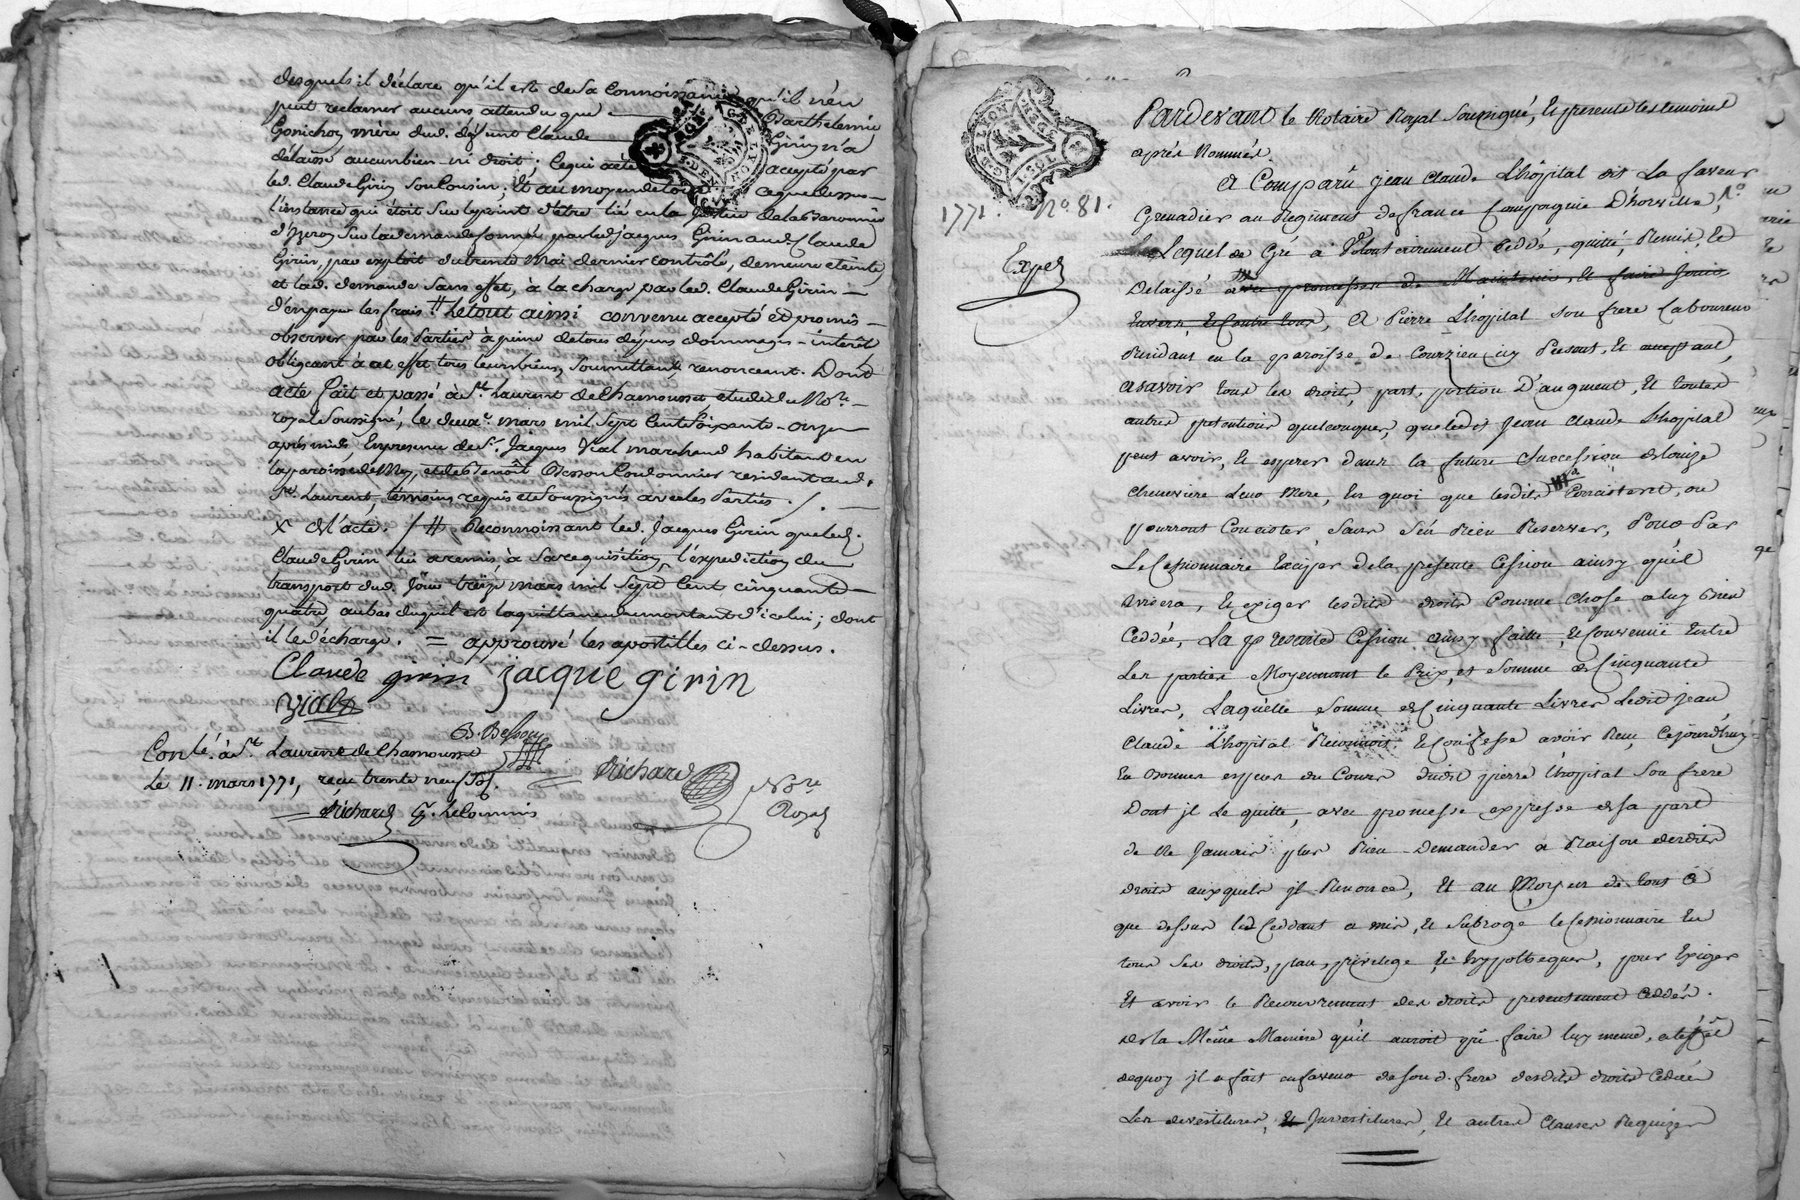 desquels il déclare qu'il est de sa connoissance qu'il n'en
peut reclamer aucuns attendu que Barthelemie
Gonichon mère dud. défunt Claude Girin n'a
délaissé aucun bien ni droit; ce qui a été accepté par
led. Claude Girin son Cousin; Et au moyen de tout ce que dessus
l'instance qui étoit sur le point d'être lié en la Justice de la Baronnie
d'yzeron sur la demande formée par led. jacques Girin aud. Claude
Girin, par exploit du trente mai dernier contrôlé, demeure éteinte
et lad. demande sans effet, à la charge par led. Claude Girin
d'en payer les frais # Le tout ainsi convenu accepté et promis
observer par les Parties à peine de tous dépens dommages intérêt
obligeant à cet effet tous leurs biens, soumettant renonceant. Dont
acte fait et passé à St. Laurent de Chamousset etude du No.re
royal soussigné, le deux.e mars mil sept cent soixante onze
après midi, En presence de Sr. Jacques Vial marchand habitant en
la paroisse de et de Benoît Besson Cordonnier residant aud.
St. Laurent, témoins requis et soussignés avec les Parties. /.
x et l'acte. / # Reconnoissant led. Jacques Girin que led.
Claude Girin lui a remis, à sa requisition, l'expedition du
transport dud. Jour treize mars mil sept cent cinquante
quatre, au bas duquel est la quittance du montant d'icelui; dont
il le décharge. = approuvé les apostilles ci-dessus.
Claude girin jacque girin
Vial
B. Besson
Conlé. à St. Laurent de Chamousset
Le 11. mars 1771, reçu trente neuf sols.
Richard No.re
Royal
Richard
1771. No. 81.
Exped
Pardevant le Notaire Royal Soussigné, Et presents les temoins
après Nommés.
A Comparû Jean Claude Lhôpital dit La faveur
Grenadier au Regiment de france Compagnie D'horville,
Lequel de Gré a Volontairement Ceddé, quitté, Remis, Et
Delaissé avec promesses de Maintenir, Et faire Jouir
Envers, Et Contre tous, A Pierre Lhopital son frere Laboureur
Residant en la paroisse de Courzieu icy Present, Et acceptant,
asavoir tous les droits, part, portion D'augment, Et toutes
autres pretentions quelconques, que ledit Jean Claude Lhopital
peut avoir, Et esperer dans la future Succession de Louize
Cheneviere Leur Mere, En quoi que lesdits Consistent, ou
pourront Consister, Sans S'en Rien Reserver, Pour Par
Le Cessionnaire Exciper de la presente Cession ainsy quil
avisera, Et exiger lesdits droits Comme Chose a luy bien
Ceddée, La presente Cession ainsy faitte, et Convenüe Entre
Les parties Moyennant le Prix, et Somme de Cinquante
Livres, Laquelle Somme de Cinquante Livres Ledit Jean
Claude Lhopital Reconnoit, et Confesse avoir Reçu Cejourdhuy
En Bonnes especes du Cours dudit pierre Lhopital son frere
Dont il Le quitte, avec promesse expresse de sa part
de Ne Jamais plus Rien Demander a Raison desdits
droits auxquels jl Renonce, Et au Moyen de tout Ce
que dessus led. Ceddant a mis, et Subrogé le Cessionnaire En
tous ses droits, place, privilege Et hypotheques, pour Exiger
Et avoir le Recouvrement des droits presentement Ceddés.
de la Même Maniere qu'il auroit pû faire luy meme, a l'effet
dequoy jl a fait en faveur de son d. frere desdits droits Cedés
Les devestitures, Et Investitures, Et autres Clauses Requises